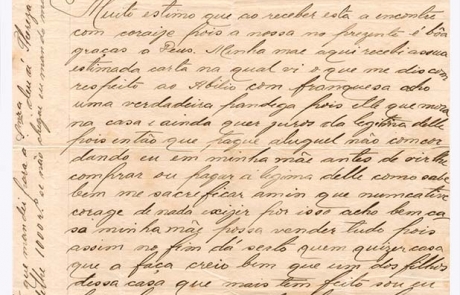 Muito estimo que ao receber esta a encontre
com coraije pois a nossa no prezente é bôa
graças a Deus. Minha mãe aqui recebi a sua
estimada carta na qual vi o que me dis com
respeito ao Abilio com franquesa acho
uma verdadeira pandiga pois elle que mora
na casa e ainda quer juros da legitima delle
pois então que pague aluguel não concor
dando eu em minha mãe antes de
comprar ou pagar a legima delle como sabe
bem me sacrificar amim que nunca tive
corage de nada exigir por isso acho bem ca
sa minha mãe possa vender tudo pois
assim no fim dá sesto quem quizer casa
que a faça creio bem que um dos filhos
dessa casa que mais tem feito sou eu
que mandei para a
elle 1000 rs e se não chegar eu mando mais